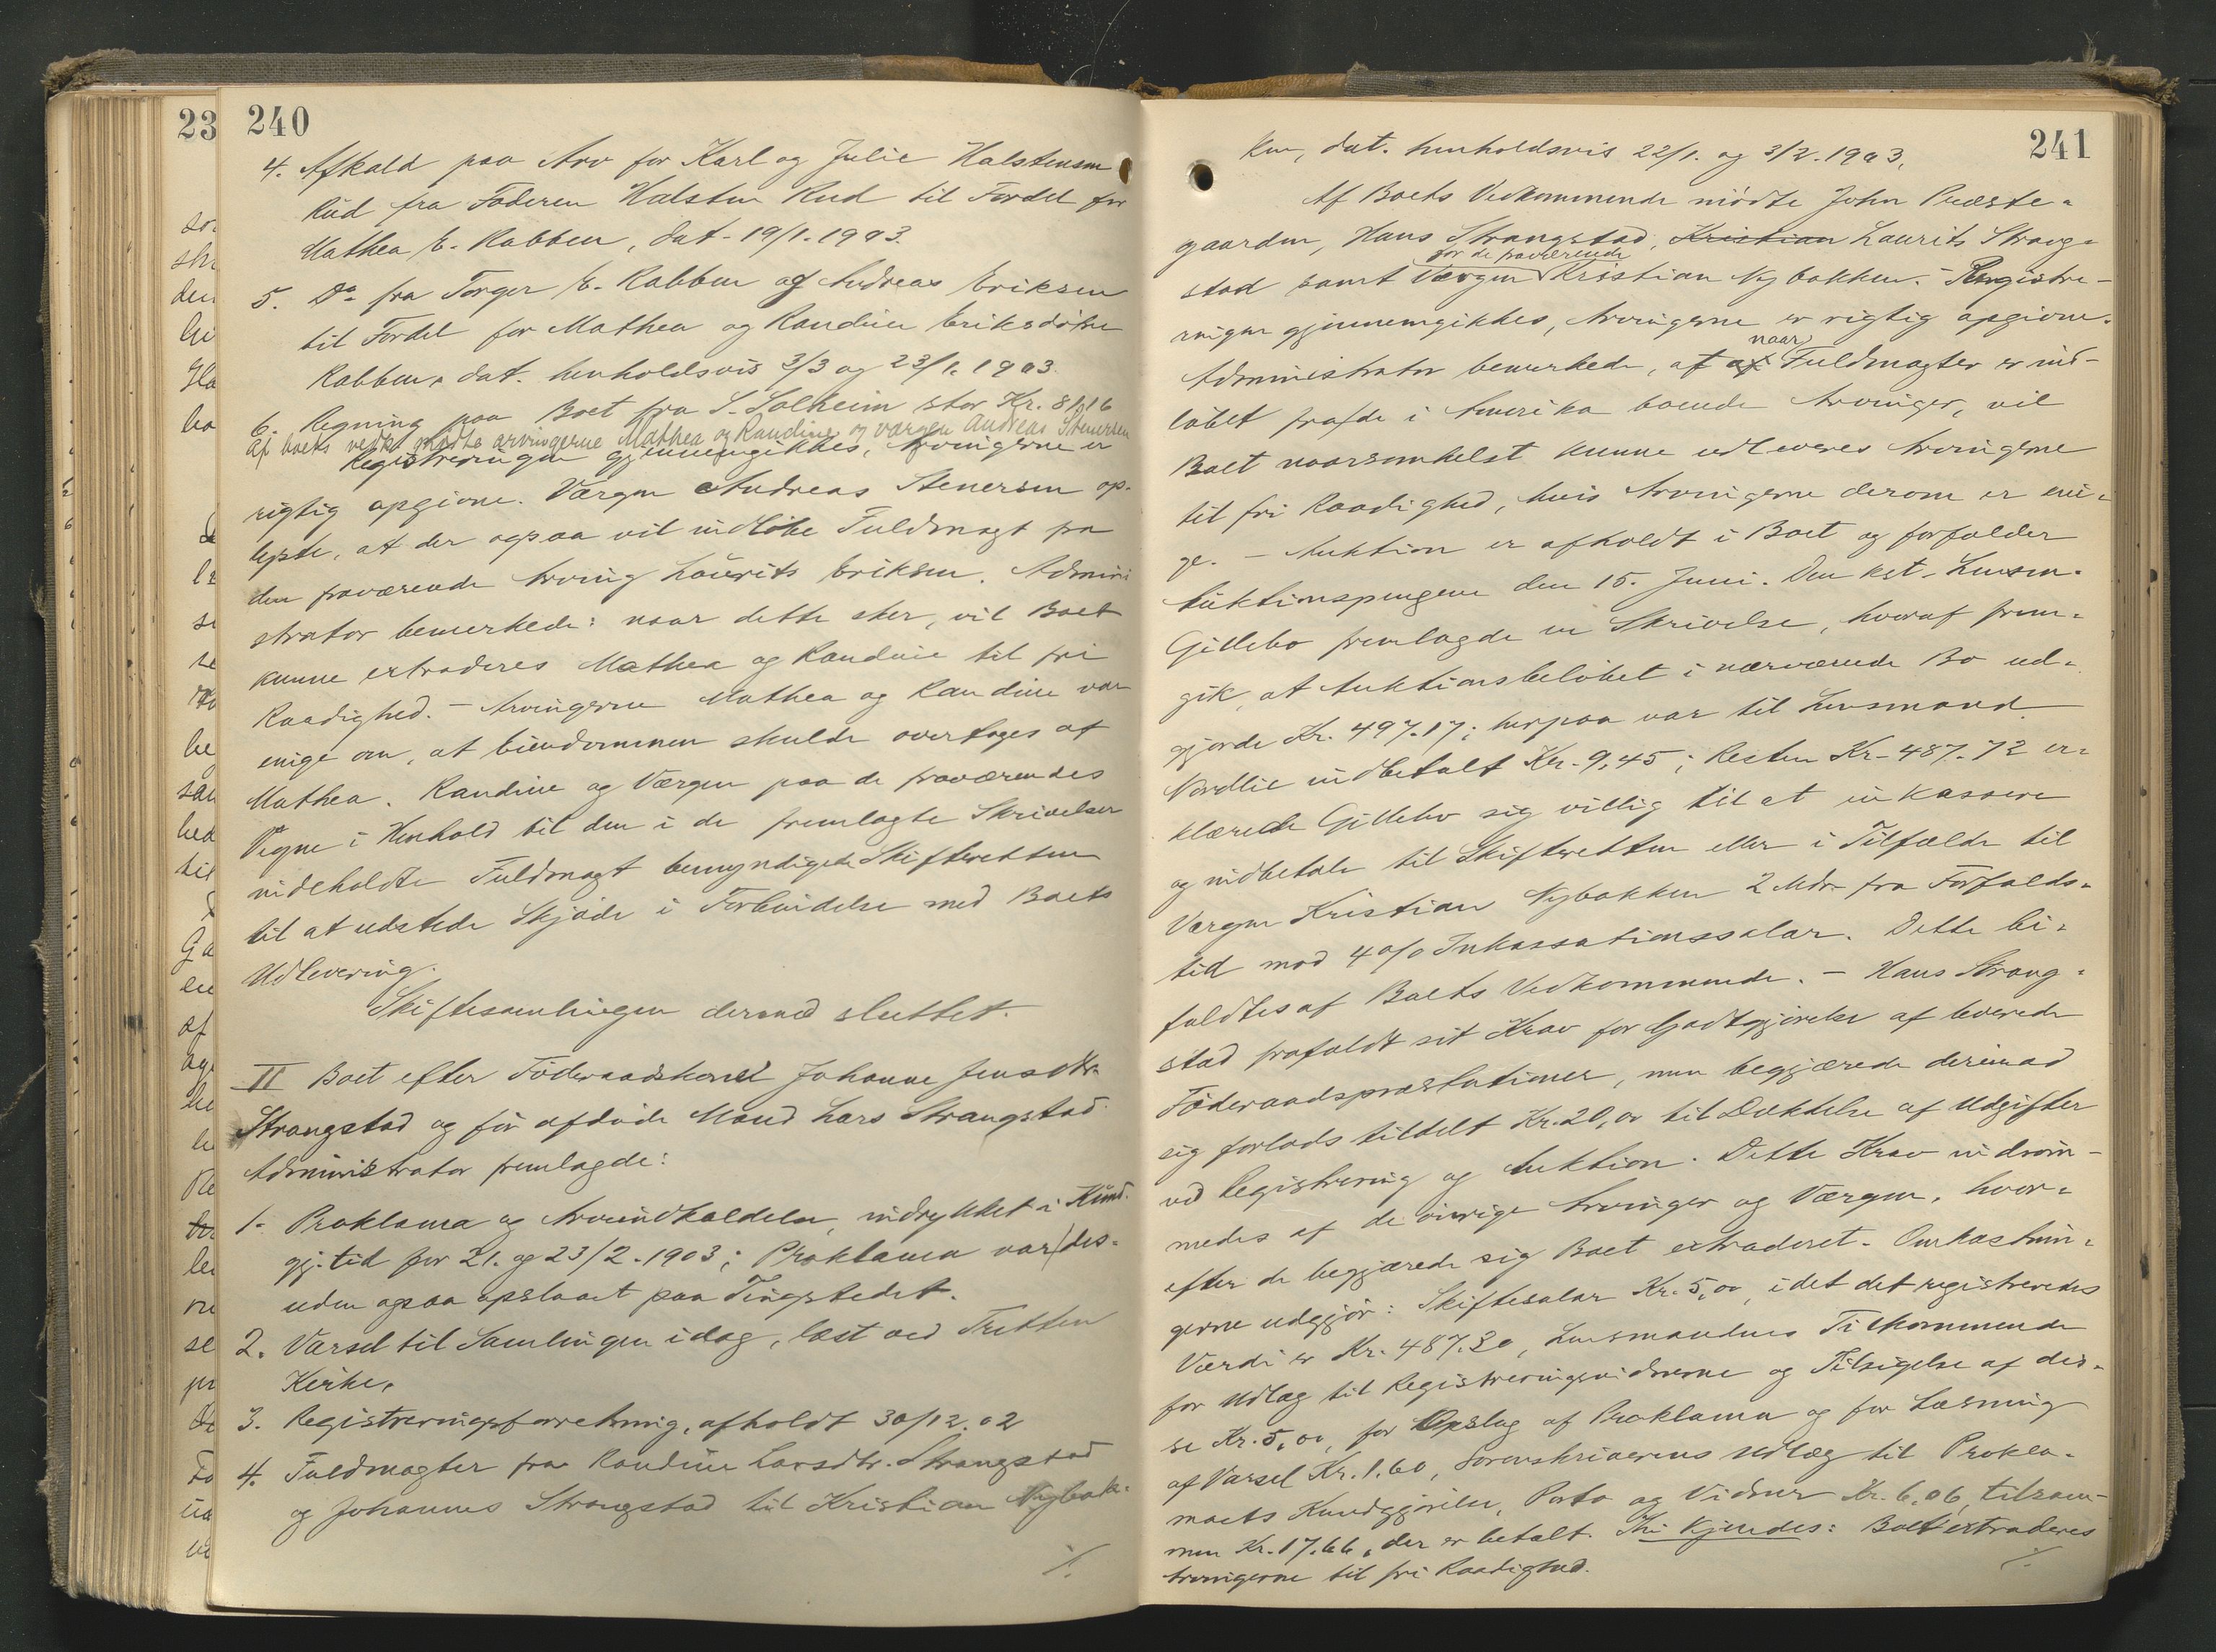 240
4. Afkald paa Arv for Karl og Julie Halstensen
Rud fra Faderen Halsten Rud til Fordel for
Mathea E. Rabben, dat. 19/1.1903.
5. Do fra Torger E. Rabben og Andreas Eriksen
til Fordel for Mathea og Randine Eriksdøtre
Rabben, dat. henholdsvis 3/3 og 23/1.1903.
6. Regning paa Boet fra S. Solheim stor Kr. 81,16
Af boets vedk. mødte arvingerne Mathea og Randine og værgen Andreas Stenersen
Registreringen gjennemgikkes, Arvingerne er
rigtig opgivne. Værgen Andreas Stenersen op-
lyste, at der ogsaa vil indløbe Fuldmagt fra
den fraværende Arving Laurits Eriksen. Admini
strator bemerkede: naar dette sker, vil Boet
kunne extraderes Mathea og Randine til fri
Raadighed. – Arvingerne Mathea og Randine var
enige om, at Eiendommen skulde overtages af
Mathea. Randine og Værgen paa de fraværendes
Vegne i Henhold til den i de fremlagte Skrivelser
indeholdte Fuldmagt bemyndigede Skifteretten
til at udstede Skjøde i Forbindelse med Boets
Udlevering.
Skiftesamlingen dermed sluttet.
II Boet efter Føderaadskone Johanne Jensdtr.
Strangstad og før afdøde Mand Lars Strangstad
Administrator fremlagde:
1. Proklama og Arveindkaldelse, indrykket i Kund.
gj. tid for 21. og 23/2.1903; Proklama var des-
uden ogsaa opslaaet paa Tingstedet.
2. Varsel til Samlingen idag, læst ved Tretten
Kirke.
3. Registreringsforretning, afholdt 30/12.02
4. Fuldmagter fra Randine Larsdtr. Strangstad
og Johannes Strangstad til Kristian Nybak-
./.
241
ken, dat. henholdsvis 22/1. og 3/2.1903.
Af Boets Vedkommende mødte John Præste-
gaarden, Hans Strangstad, Kristian Laurits Strang-
for de fraværende
stad samt Værgen Kristian Nybakken. – Registre-
ringen gjennemgikkes, Arvingerne er rigtig opgivne.
naar
Administrator bemerkede, at af Fuldmagter er ind-
løbet fra de i Amerika boende Arvinger, vil
Boet naarsomhelst kunne udleveres Arvingerne
til fri Raadighed, hvis Arvingerne derom er eni-
ge. – Auktion er afholdt i Boet og forfalder
Auktionspengene den 15. Juni. Den kst. Lensm.
Gillebo fremlagde en Skrivelse, hvoraf frem-
gik, at Auktionsbeløbet i nærværende Bo ud-
gjorde Kr. 497.17; herpaa var til Lensmand
Nordlie indbetalt Kr. 9,45; Resten Kr. 487.72 er-
klærede Gillebo sig villig til at inkassere
og indbetale til Skifteretten eller i Tilfælde til
Værgen Kristian Nybakken 2 Mdr. fra Forfalds-
tid mod 4 o/o Inkassationssalar. Dette bi-
faldtes af Boets Vedkommende. – Hans Strang-
stad frafaldt sit Krav for Godtgjørelse af leverede
Føderaadspræstationer, men begjærede derimod
sig forlods tildelt Kr. 20,00 til Dækkelse af Udgifter
ved Registrering og Auktion. Dette Krav indrøm-
medes af de øvrige Arvinger og Værgen, hvor-
efter de begjærede sig Boet extraderet. Omkostnin-
gerne udgjør: Skiftesalar Kr. 5,00, idet det registreredes
Værdi er Kr. 487.30, Lensmandens Tilkommende
for Udlæg til Registreringsvidnerne og Tilsigelse af dis-
se Kr. 5,00, for Opslag af Proklama og for Læsning
af Varsel Kr. 1.60, Sorenskriverens Udlæg til Prokla-
maets Kundgjørelse, Porto og Vidner Kr. 6,06, tilsam-
men Kr. 17.66, der er betalt. Thi kjendes: Boet extraderes
Arvingerne til fri Raadighed.
./.